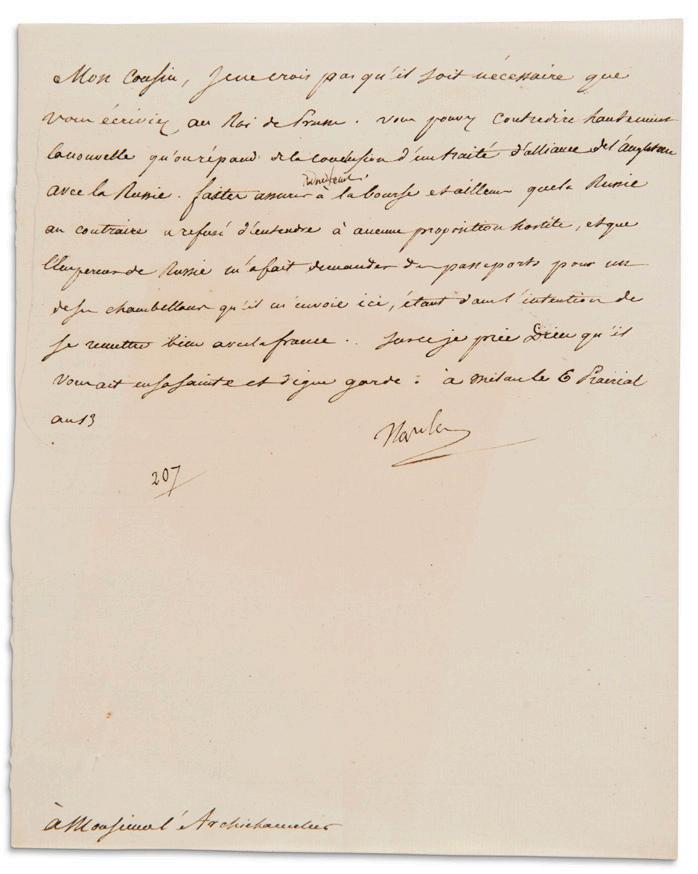 Mon Cousin, Je ne crois pas qu'il soit nécessaire que
vous écriviez au Roi de Prusse. vous pouvez contredire hautement
la nouvelle qu'on répand de la conclusion d'un traité d'alliance de l'angleterre
avec la Russie. faites assurer à la bourse et ailleurs que la Russie
au contraire a refusé d'entendre à aucune proposition hostile, et que
l'Empereur de Russie m'a fait demander des passeports pour un
de ses chambellans qu'il m'envoie ici, étant dans l'intention de
se remettre bien avec la france.. sur ce je prie Dieu qu'il
vous ait en sa sainte et digne garde: à Milan le 6 Prairial
an 13
207
à Monsieur l'Archichancelier